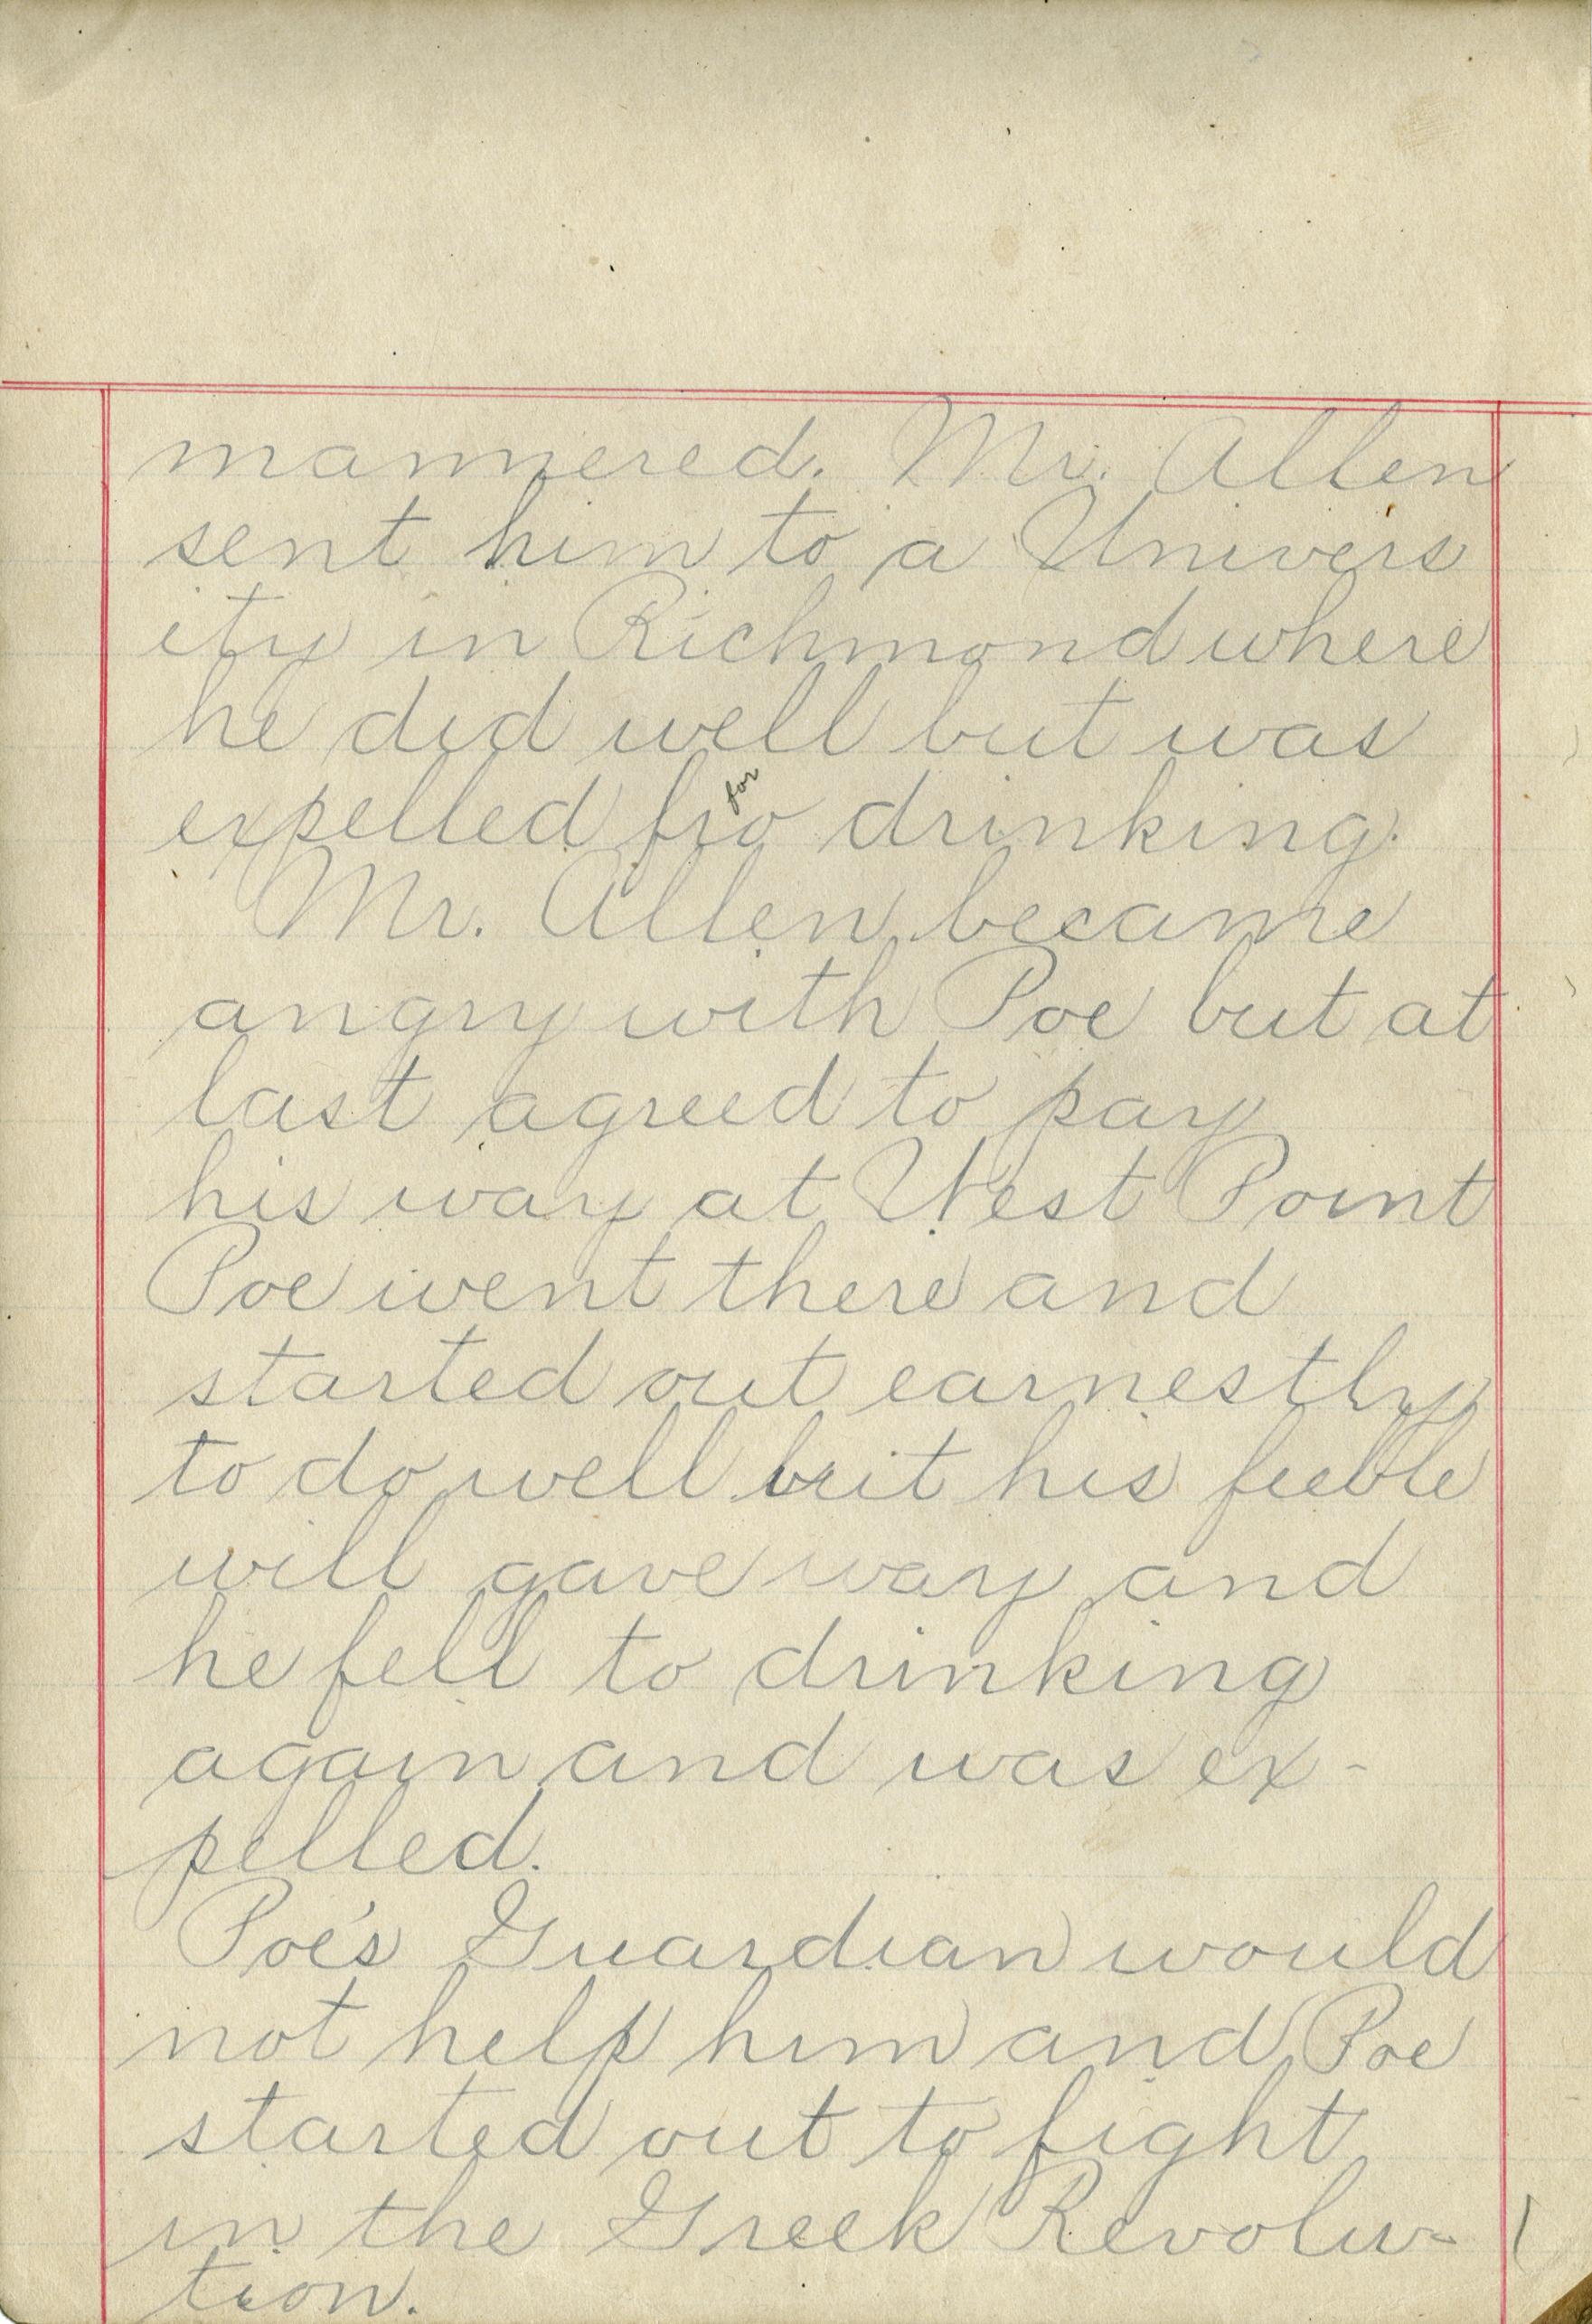 mannered. Mr. Allen
sent him to a Univers
ity in Richmond where
he did well but was
for
expelled fro drinking.
Mr. Allen became
angry with Poe but at
last agreed to pay
his way at West Point
Poe went there and
started out earnestly
to do well but his feeble
will gave way and
he fell to drinking
again and was ex-
pelled.
Poe's Guardian would
not help him and Poe
started out to fight
in the Greek Revolu-
tion.